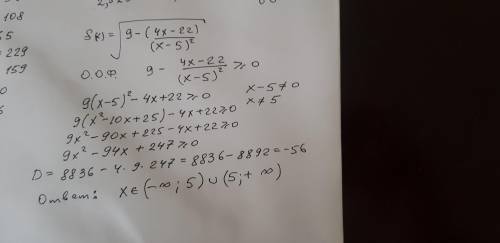 108
65
= 229
159
0
S(x) = √(9 - ((4x-22)/(x-5)²))
О.О.Ф. 9 - (4x-22)/(x-5)² ⩾ 0
9(x-5)² - 4x + 22 ⩾ 0 x - 5 ≠ 0
9(x² - 10x + 25) - 4x + 22 ⩾ 0 x ≠ 5
9x² - 90x + 225 - 4x + 22 ⩾ 0
9x² - 94x + 247 ⩾ 0
D = 8836 - 4 · 9 · 247 = 8836 - 8892 = -56
Ответ: x ∈ (-∞; 5) ∪ (5; +∞)